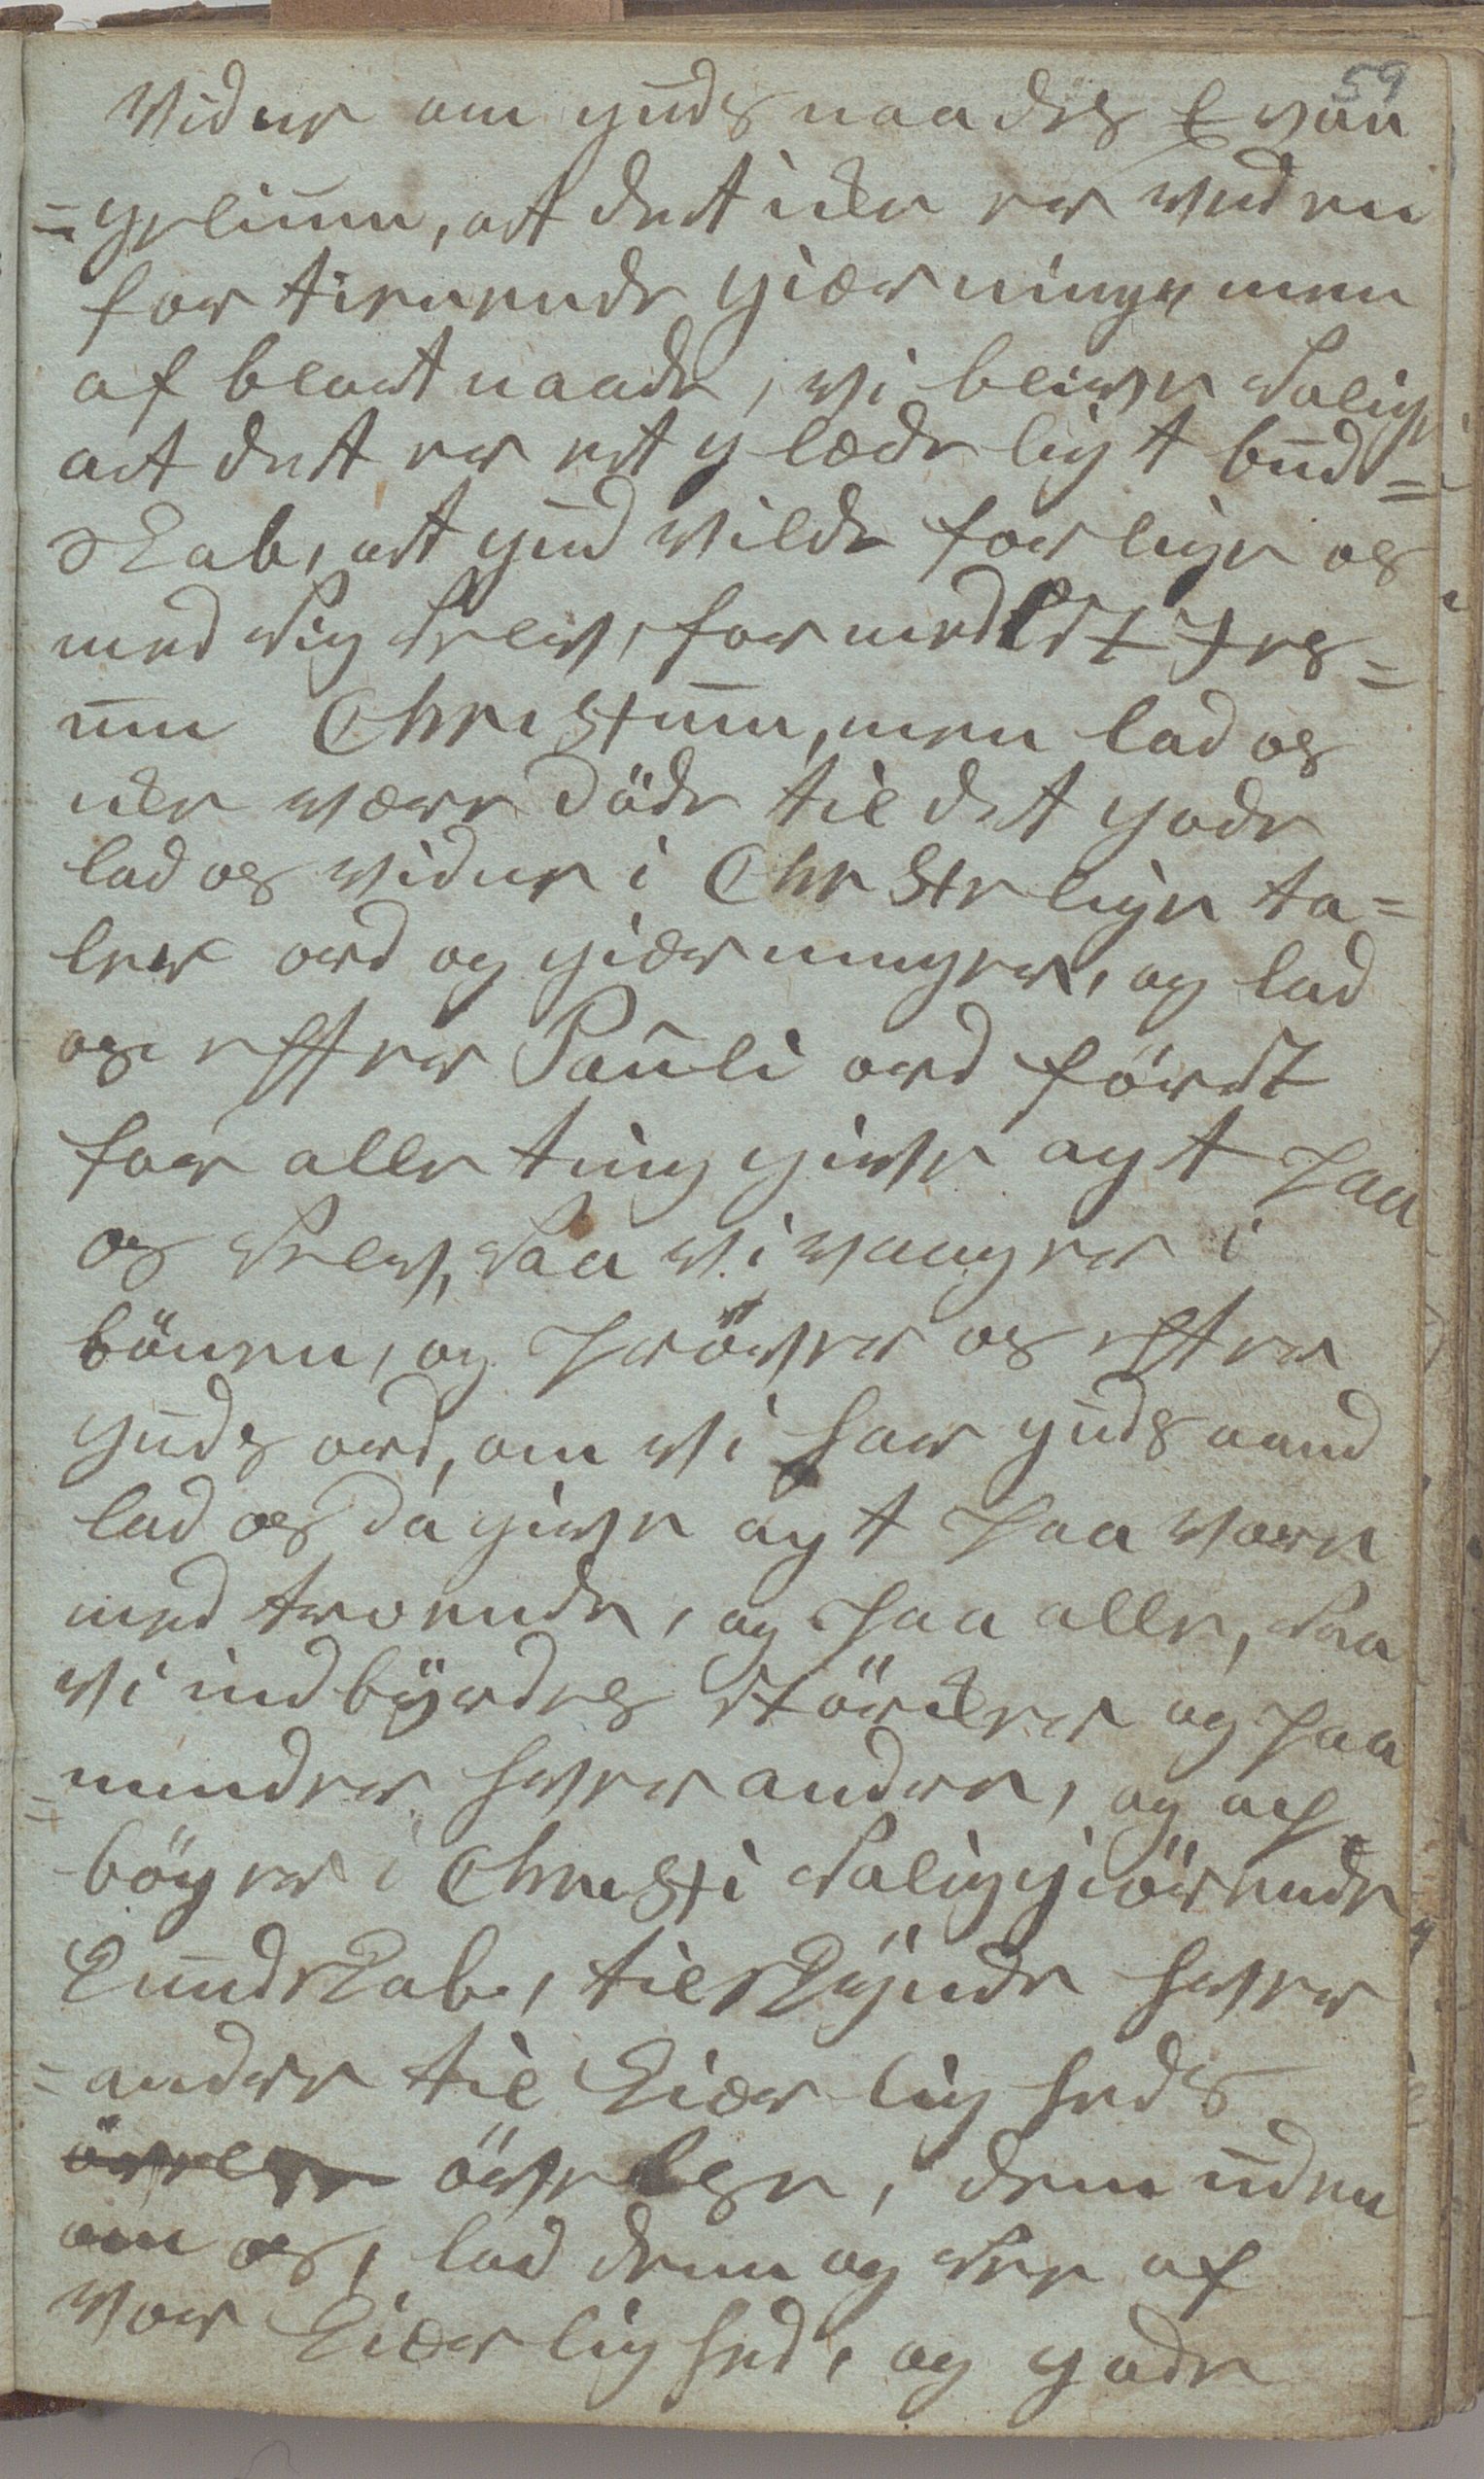 59
Vidne om guds naades Evan
=gelium, at det icke er ved en
for tienende gierninger men
af blot naade, vi bliver Salige
at det er et glædeligt bud=
skab, at gud vilde forlige os
med Sig Selv, formedelst Jes=
um Christum, men lad os
icke være döde til det gode
lad os vidne i Christelige ta=
ler ord og gierninger, og lad
os effter Pauli ord först
for alle ting give agt paa
os Selv, Saa vi vaager i
bönen, og pröver os effter
guds ord, om vi har guds aand
lad os da give agt paa vore
med troende, og paa alle, Saa
vi indbyrdes störcker og paa
=minder hver andre, og op
böger i Christi Saliggiörende
kundskab, tilskynde hver
=andre til kierligheds
övelse övelse, dem uden
om os, lad dem og See af
vor kierlighed, og gode